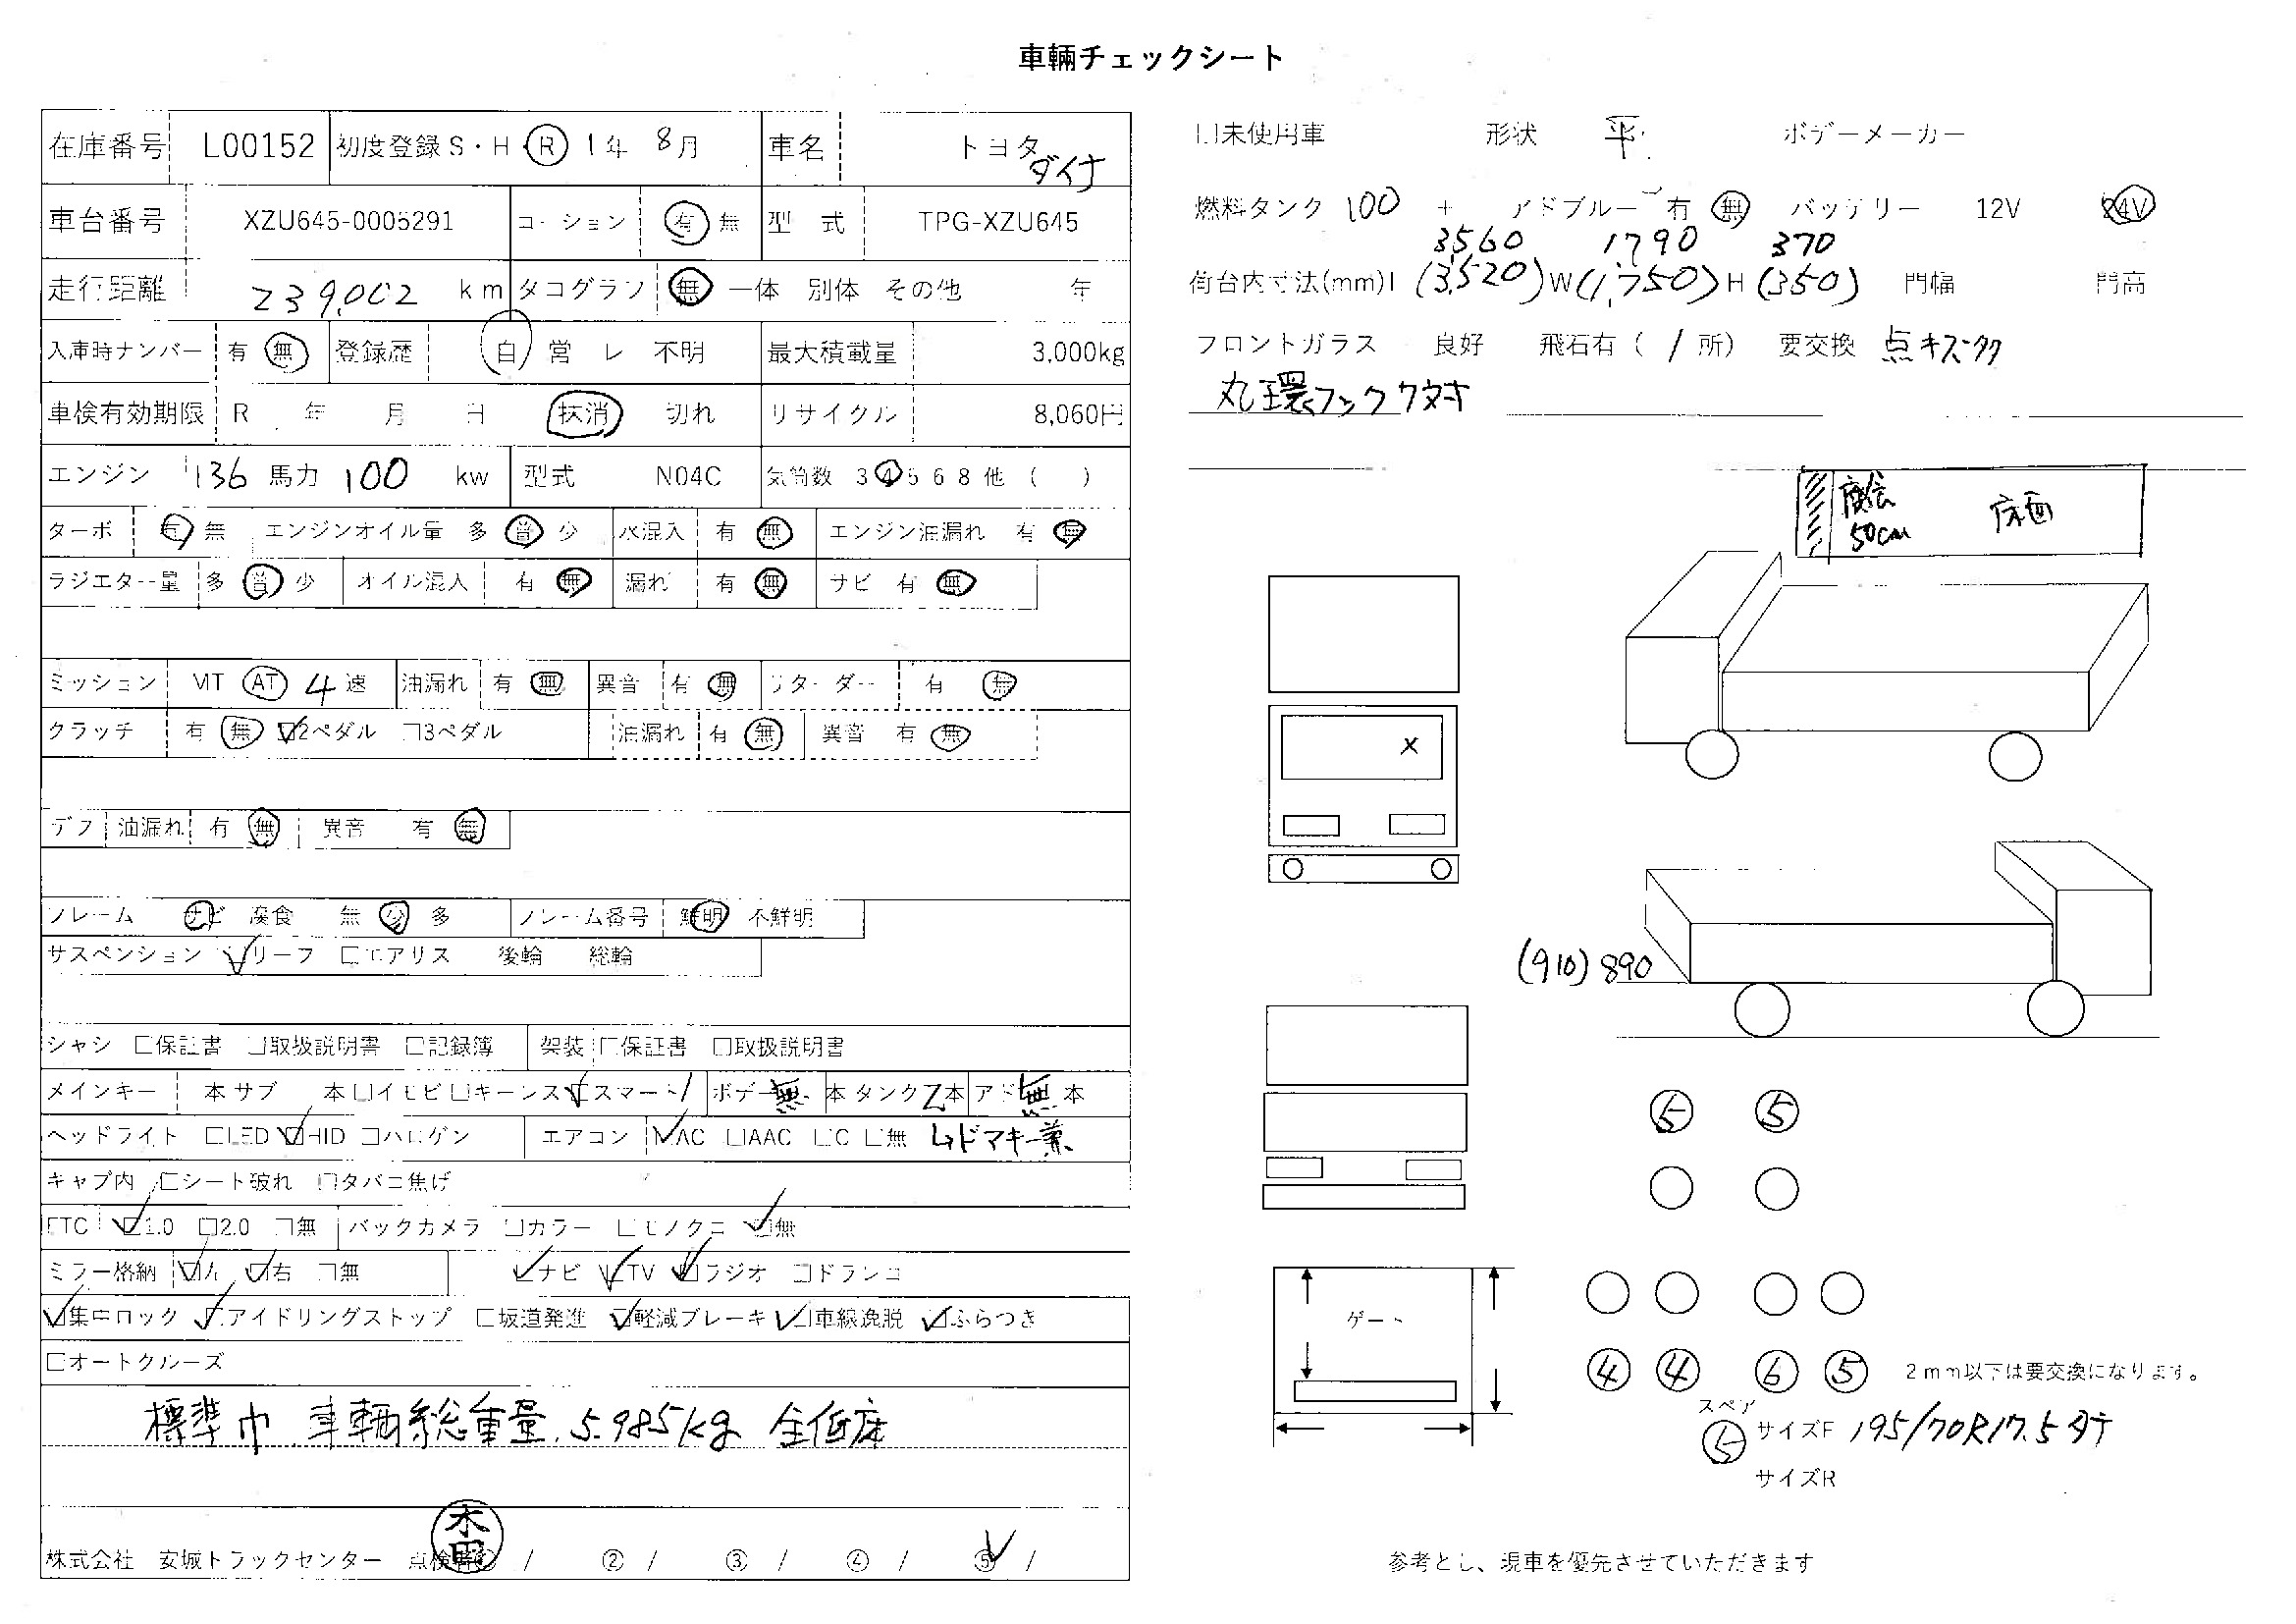 車輌チェックシート
在庫番号 L00152 初度登録 S・H・R 1年 8月 車名 トヨタ ダイナ
車台番号 XZU645-0005291 コーション 有 無 型式 TPG-XZU645
走行距離 239,002 km タコグラフ 無 一体 別体 その他 年
入庫時ナンバー 有 無 登録歴 自 営 レ 不明 最大積載量 3,000kg
車検有効期限 R 年 月 日 抹消 切れ リサイクル 8,060円
エンジン 136 馬力 100 kw 型式 N04C 気筒数 3 4 5 6 8 他 ( )
ターボ 有 無 エンジンオイル量 多 普 少 水混入 有 無 エンジン油漏れ 有 無
ラジエター量 多 普 少 オイル混入 有 無 漏れ 有 無 サビ 有 無
ミッション MT AT 4 速 油漏れ 有 無 異音 有 無 リターダー 有 無
クラッチ 有 無 ☑2ペダル □3ペダル 油漏れ 有 無 異音 有 無
デフ 油漏れ 有 無 異音 有 無
フレーム サビ 腐食 無 少 多 フレーム番号 鮮明 不鮮明
サスペンション ☑リーフ □エアサス 後輪 総輪
シャシ □保証書 □取扱説明書 □記録簿 架装 □保証書 □取扱説明書
メインキー 本 サブ 本 □イモビ □キーレス ☑スマート 1 ボデー 無 本 タンク 2 本 アド 無 本
ヘッドライト □LED ☑HID □ハロゲン エアコン ☑AC □AAC □C □無 ↳ドアキー兼
キャブ内 □シート破れ □タバコ焦げ
ETC ☑1.0 □2.0 □無 バックカメラ □カラー □モノクロ ☑無
ミラー格納 ☑左 ☑右 □無 ☑ナビ ☑TV ☑ラジオ □ドラレコ
☑集中ロック ☑アイドリングストップ □坂道発進 ☑軽減ブレーキ ☑車線逸脱 ☑ふらつき
□オートクルーズ
標準巾 車輌総重量 5,985kg 全低床
株式会社 安城トラックセンター 点検者① / ② / ③ / ④ / ⑤ /
□未使用車 形状 平 ボデーメーカー
燃料タンク 100 + アドブルー 有 無 バッテリー 12V 24V
3560 1,790 370
荷台内寸法(mm)L (3,520) W (1,750) H (350) 門幅 門高
フロントガラス 良好 飛石有 ( / 所) 要交換 点キズ多々
丸環フック7対
腐食 50cm 床面
×
(910) 890
5 5
ゲート
4 4 6 5 2mm以下は要交換になります。
スペア
5 サイズF 195/70R17.5
サイズR
参考とし、現車を優先させていただきます